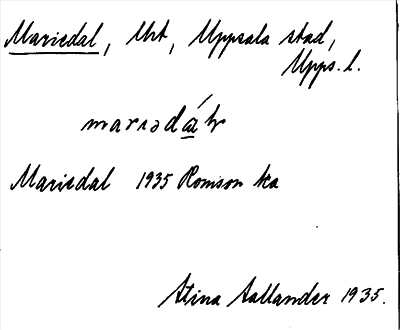 Mariedal, Urt, Uppsala stad,
Upps. l.
Mariedal 1935 Romson
Stina Sallander 1935.